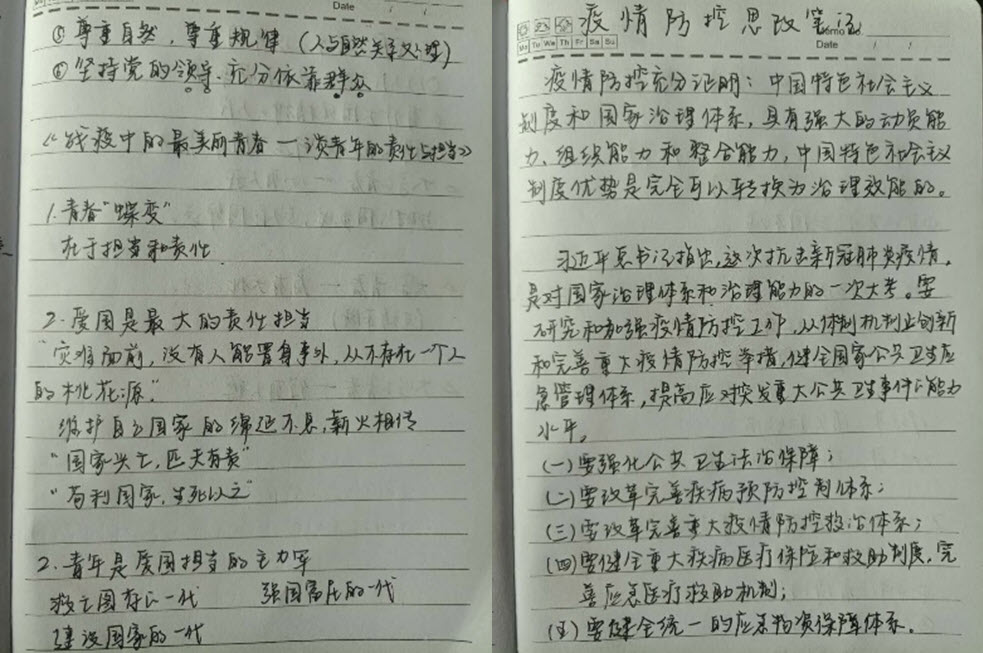 Date
⑤ 尊重自然，尊重规律（人与自然关系处理）
⑥ 坚持党的领导、充分依靠群众
《战疫中的最美丽青春—谈青年的责任与担当》
1. 青春"蝶变"
在于担当和责任
2. 爱国是最大的责任担当
"灾难面前，没有人能置身事外，从不存在一个人
的桃花源"
维护自己国家的绵延不息，薪火相传
"国家兴亡，匹夫有责"
"苟利国家，生死以之"
2. 青年是爱国担当的主力军
救亡图存的一代 强国富民的一代
建设国家的一代
疫情防控思政笔记
Memo No.
Mo Tu We Th Fr Sa Su
Date / /
疫情防控充分证明：中国特色社会主义
制度和国家治理体系，具有强大的动员能
力、组织能力和整合能力，中国特色社会主义
制度优势是完全可以转换为治理效能的。
习近平总书记指出，这次抗击新冠肺炎疫情，
是对国家治理体系和治理能力的一次大考。要
研究和加强疫情防控工作，从体制机制上创新
和完善重大疫情防控举措，健全国家公共卫生应
急管理体系，提高应对突发重大公共卫生事件的能力
水平。
(一)要强化公共卫生法治保障；
(二)要改革完善疾病预防控制体系；
(三)要改革完善重大疫情防控救治体系；
(四)要健全重大疾病医疗保险和救助制度，完
善应急医疗救助机制；
(五)要健全统一的应急物资保障体系。